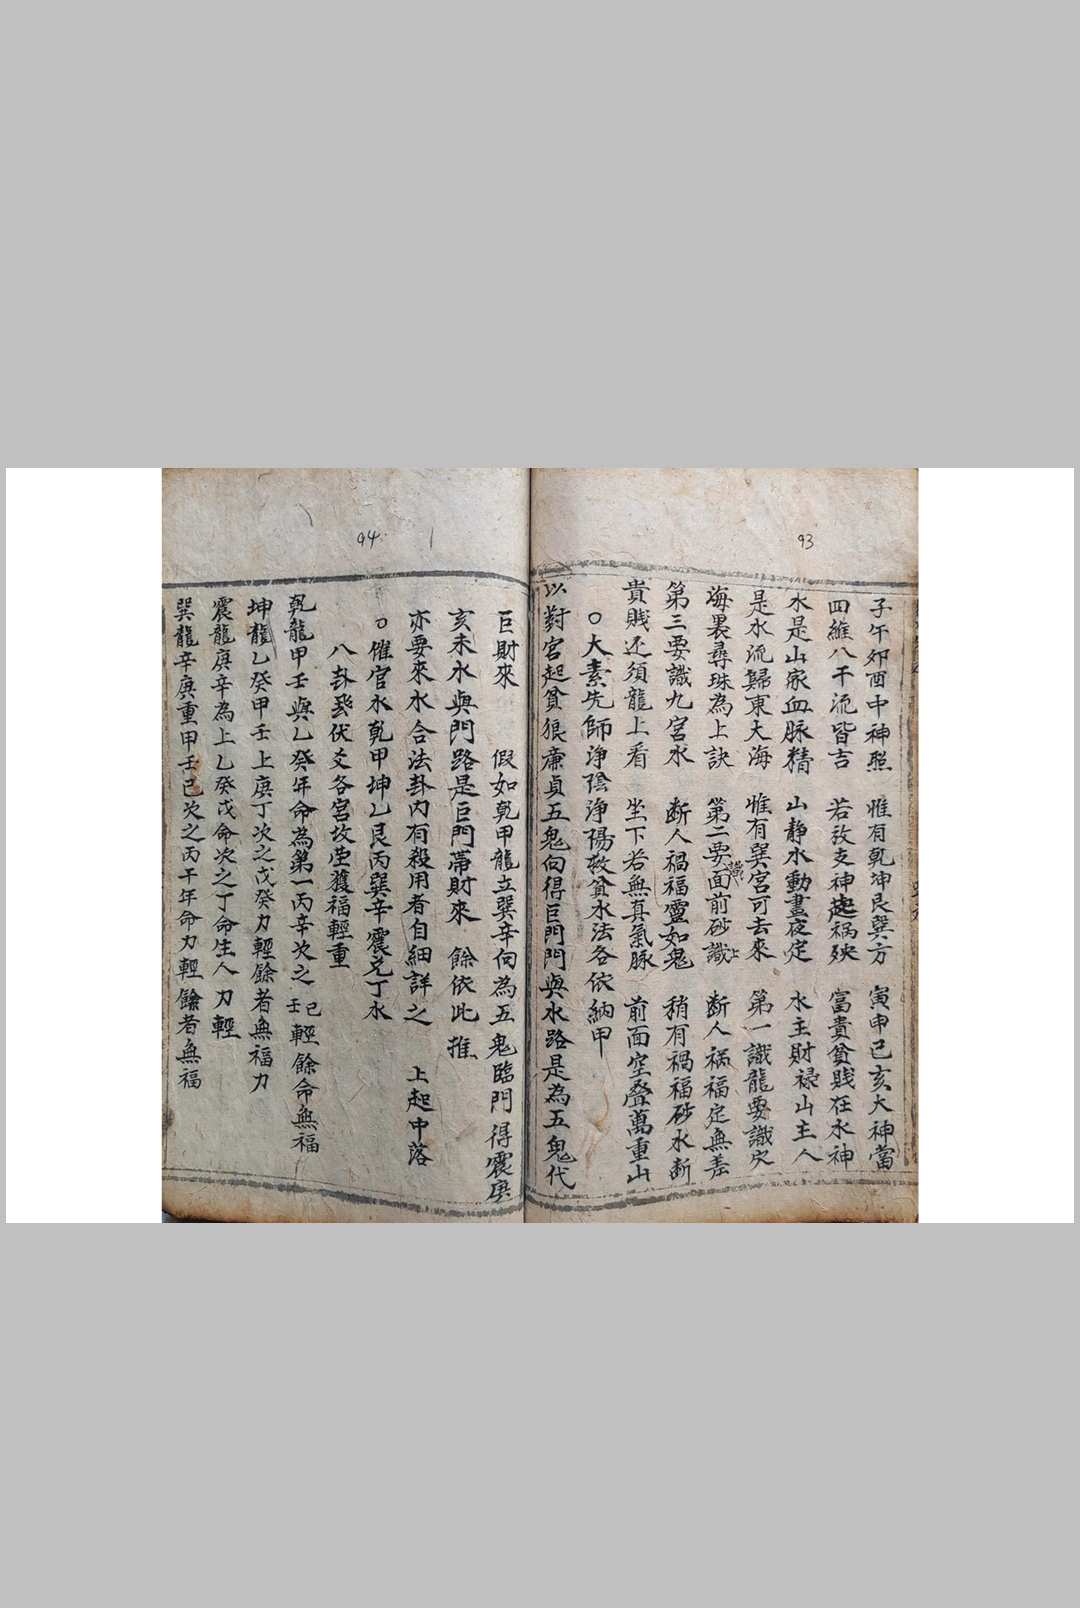 93
子午卯酉中神照 惟有乾坤艮巽方 寅申巳亥大神當
四維八干流皆吉 若放支神起禍殃 富貴貧賤在水神
水是山家血脉精 山静水動晝夜定 水主財祿山主人
是水流歸東大海 惟有巽宮可去來 第一識龍要識穴
海裏尋珠為上訣 第二要面前砂識 断人禍福定無差
第三要識九宮水 断人禍福靈如鬼 稍有禍福砂水断
貴賤还須龍上看 坐下若無真氣脉 前面空叠萬重山
○大素先師淨陰淨陽救貧水法各依納甲
以對宮起貪狼廉貞五鬼向得巨門門與水路是為五鬼代
94
巨財來 假如乾甲龍立巽辛向為五鬼臨門 得震庚
亥未水與門路是巨門帶財來 餘依此推
亦要來水合法卦内有殺用者自細詳之 上起中落
○催官水乾甲坤乙艮丙巽辛震兑丁水
八卦飛伏爻各宮坟茔獲福輕重
乾龍甲壬與乙癸年命為第一丙辛次之壬巳輕餘命無福
坤龍乙癸甲壬上庚丁次之戊癸力輕餘者無福力
震龍庚辛為上乙癸戊命次之丁命生人力輕
巽龍辛庚重甲壬己次之丙午年命力輕餘者無福